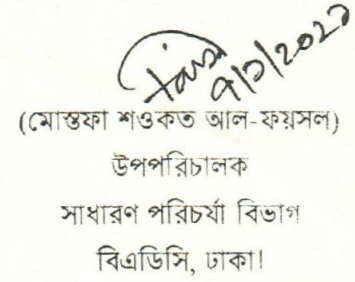 (মোস্তফা শওকত আল-ফয়সল)
উপপরিচালক
সাধারণ পরিচর্যা বিভাগ
বিএডিসি, ঢাকা!